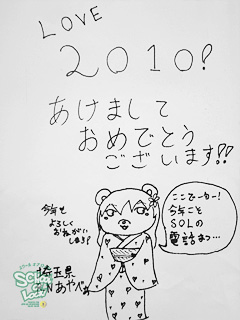 LOVE
2010!
あけまして
おめでとう
ございます!!
今年も
よろしく
おねがい
します?
ここでーカー!
今年こそ
SOLの
電話まっ…
埼玉県
R.N あやべぇ